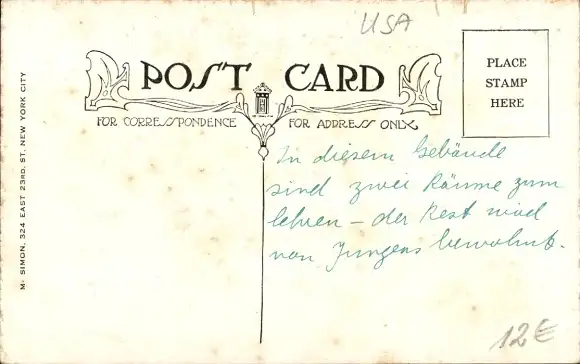 USA
POST CARD
FOR CORRESPONDENCE
FOR ADDRESS ONLY
PLACE
STAMP
HERE
M. SIMON, 324 EAST 23RD. ST. NEW YORK CITY
In diesem Gebäude
sind zwei Räume zum
lehren – der Rest wird
von Jungens bewohnt.
12€